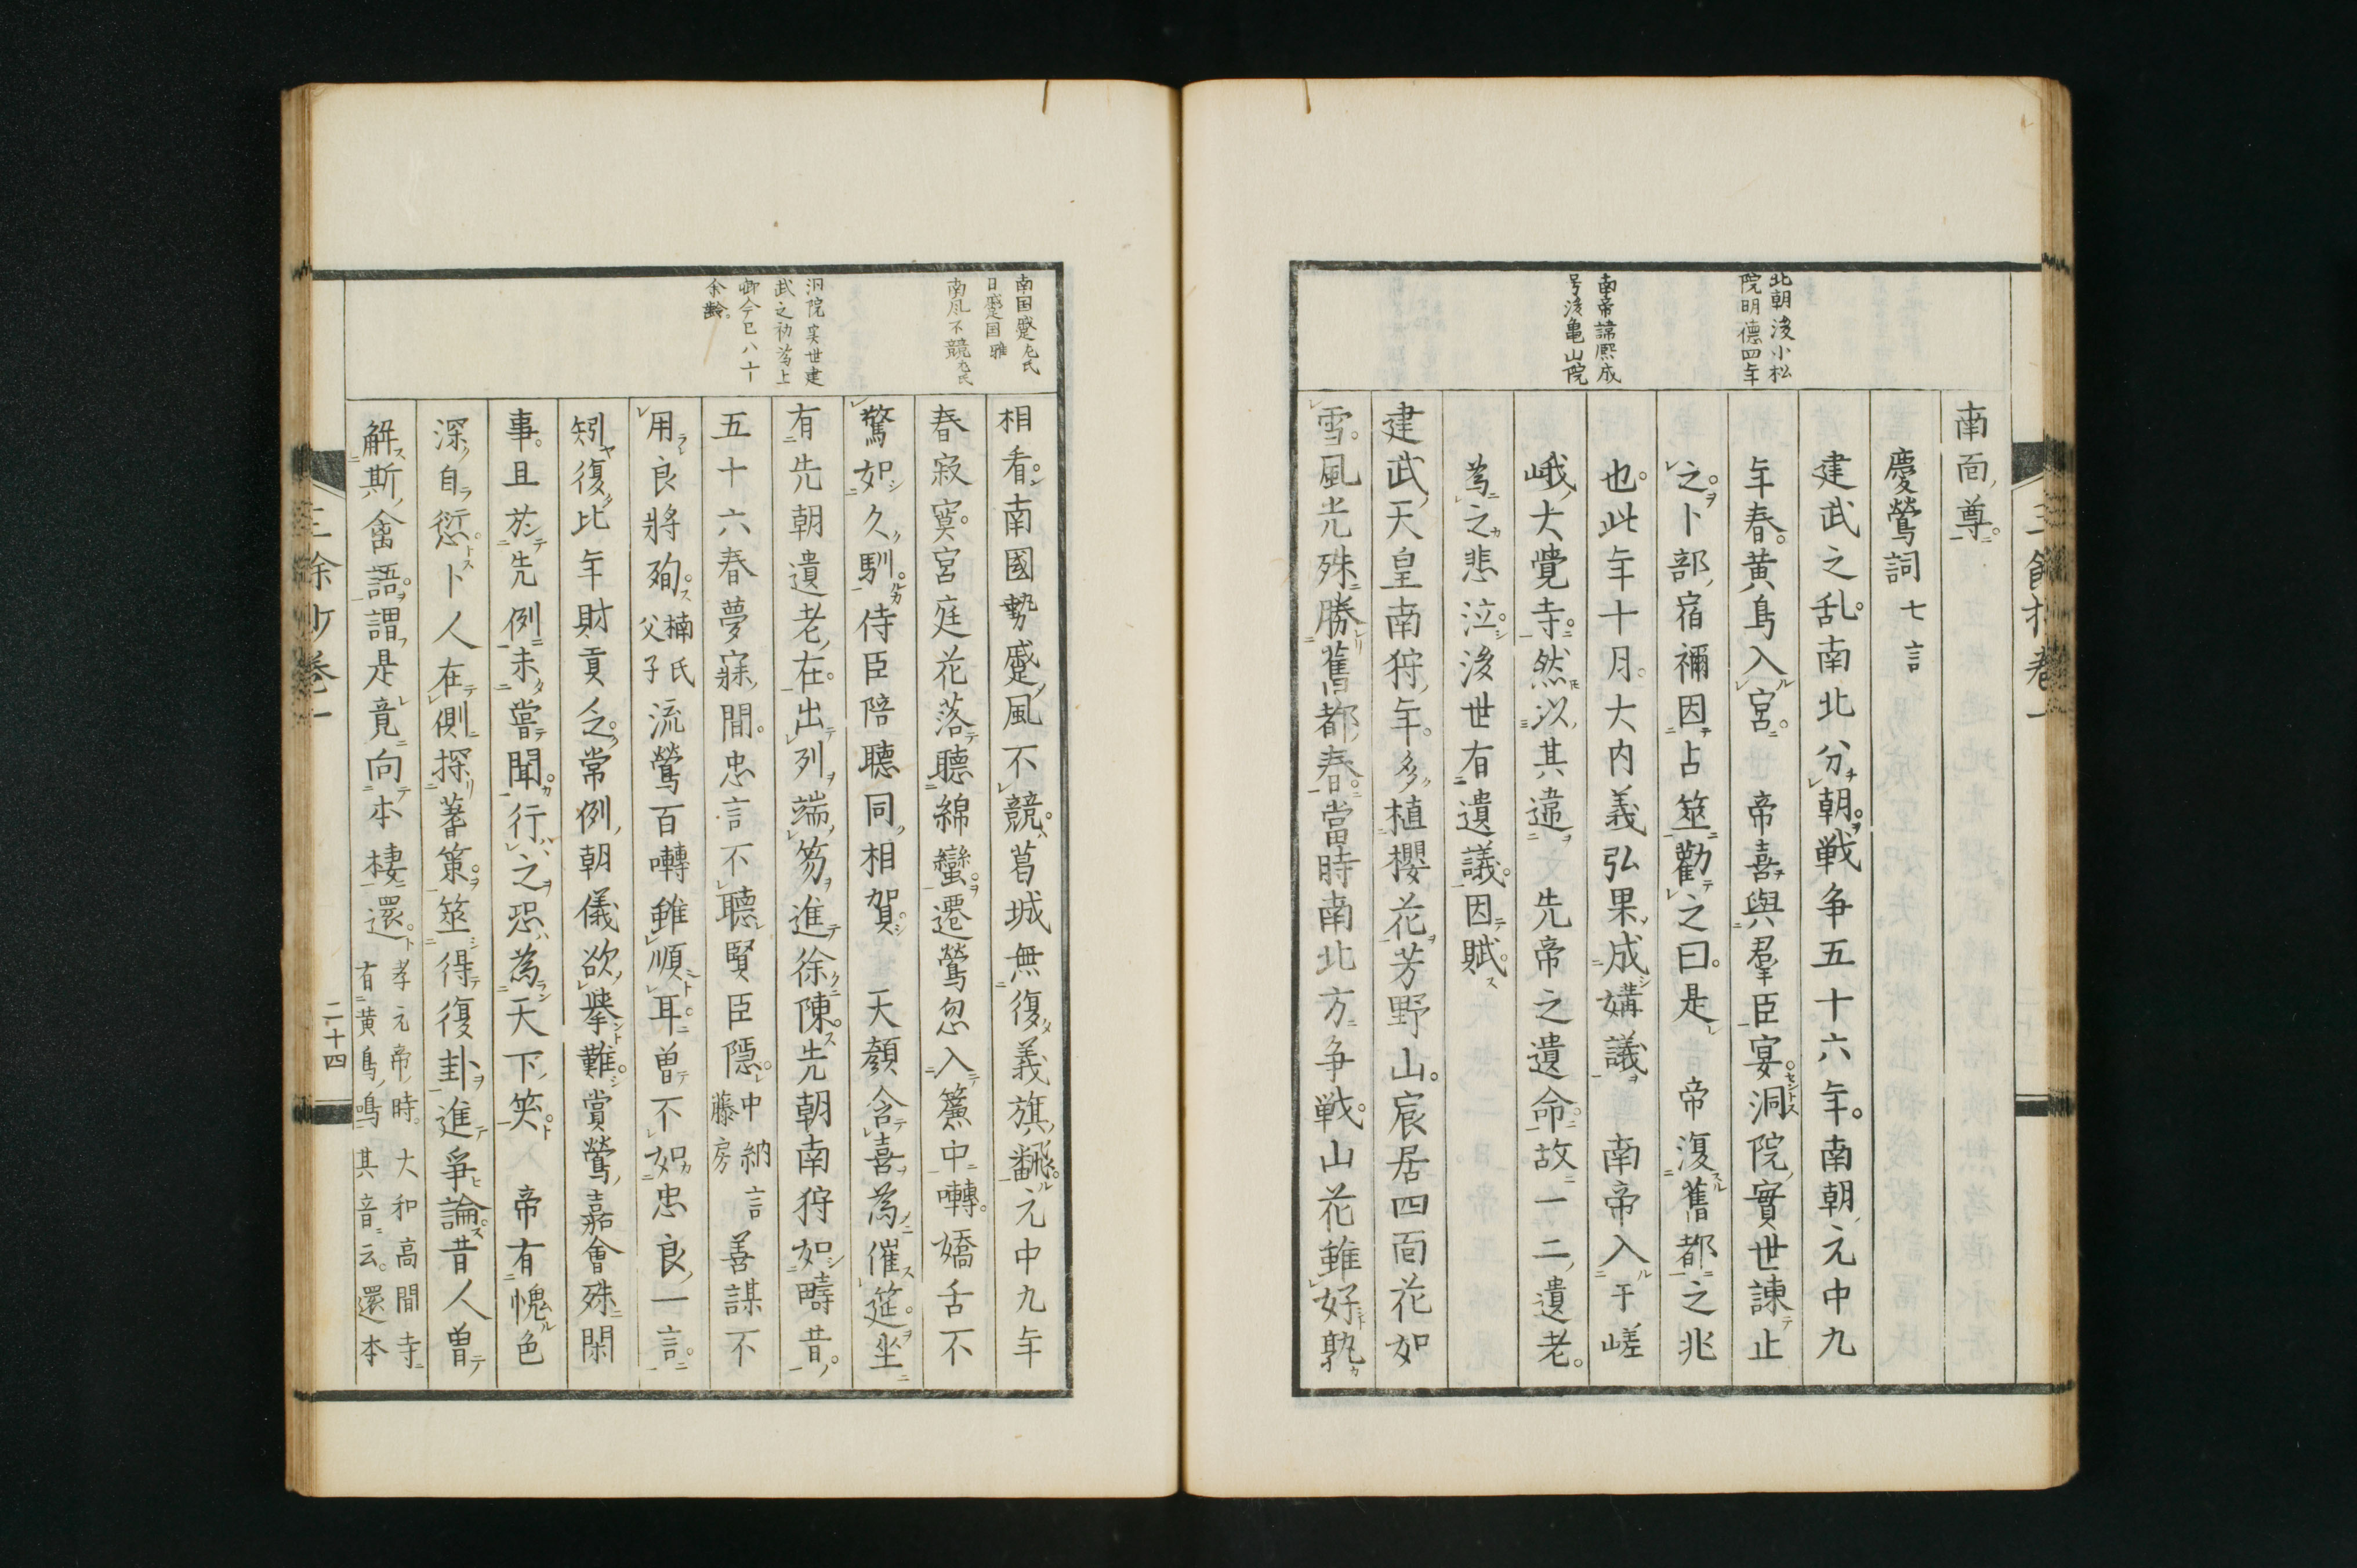 北朝後小松
院明徳四年
南帝諱熈成
号後亀山院
南面尊
慶鶯詞 七言
建武之乱南北分朝戦争五十六年南朝元中九
年春黄鳥入宮 帝喜與羣臣宴洞院實世諫止
之卜部宿禰因占筮勸之曰是 帝復舊都之兆
也此年十月大内義弘果成媾議 南帝入于嵯
峨大覺寺然以其違 先帝之遺命故一二遺老
為之悲泣後世有遺議因賦
建武天皇南狩年多植櫻花芳野山宸居四面花如
雪風光殊勝舊都春當時南北方争戦山花雖好孰
南国蹙左氏
日蹙国雅
南風不競左氏
洞院実世建
武之初為上
卿今已八十
余齢
相看南國勢蹙風不競葛城無復義旗翻元中九年
春寂寞宮庭花落聽綿蠻遷鶯忽入簾中囀嬌舌不
驚如久馴侍臣陪聽同相賀 天顏含喜為催筵坐
有先朝遺老在出列端笏進徐陳先朝南狩如疇昔
五十六春夢寐間忠言不聽賢臣隱中納言藤房善謀不
用良將殉楠氏父子流鶯百囀雖順耳曽不如忠良一言
矧復比年財貢乏常例朝儀欲擧難賞鶯嘉會殊閑
事且於先例未嘗聞行之恐為天下笑 帝有愧色
深自愆卜人在側探蓍策筮得復卦進爭論昔人曽
解斯禽語謂是竟向本棲還孝元帝時大和高間寺有黄鳥鳴其音云還本
二十四